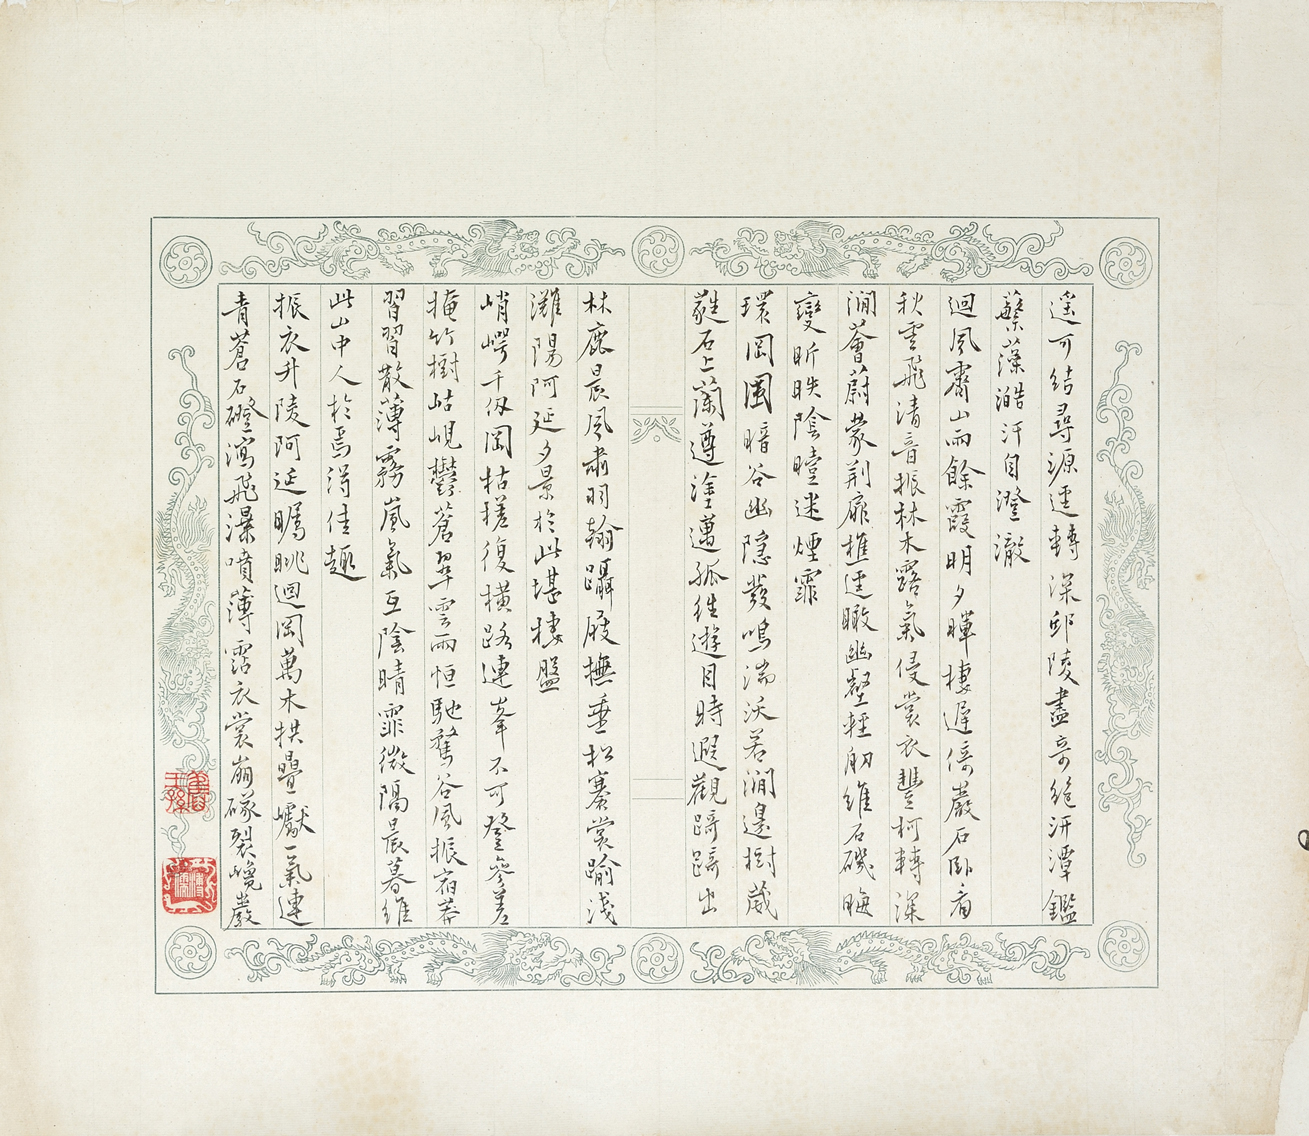 遥可結尋源逕轉深邨陵盡奇絶汧潭鑑
蘩藻澔汗自澄澈
迴風霽山雨餘霞明夕暉棲遲倚巖石臥看
秋雲飛清音振林木露氣侵裳衣豐柯轉深
澗薈蔚蒙荆扉樵逕瞰幽壑輕舠維石磯晦
變昕昳陰曀迷煙霏
環岡圍暗谷幽隱發鳴湍沃若澗邊樹葳
蕤石上蘭遵塗邁孤往遊目時遐觀踦踦出
林鹿晨風肅羽翰躡屐撫垂松褰裳踰淺
灘陽阿延夕景於此堪棲盤
峭崿千仭岡枯槎復橫路連峯不可登參差
掩竹樹岵峴鬱蒼翠雲雨恒馳騖谷風振宿莽
習習散薄霧嵐氣互陰晴霏微隔晨暮維
此山中人於焉得佳趣
振衣升陵阿延矚眺迴岡萬木拱疊巘一氣連
青蒼石磴瀉飛瀑噴薄霑衣裳崩硺裂巉巖
舊王孫
溥儒